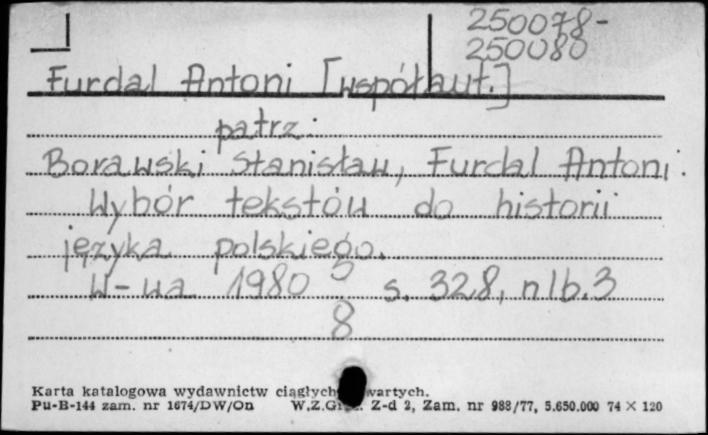 250078-
250080
Furdal Antoni [współaut.]
patrz:
Borawski Stanisław, Furdal Antoni:
Wybór tekstów do historii
języka polskiego.
W-wa 1980 s. 328, nlb. 3
8
Karta katalogowa wydawnictw ciągłych wartych.
Pu-B-144 zam. nr 1674/DW/On W.Z.G Z-d 2, Zam. nr 988/77, 5.650.000 74 × 120